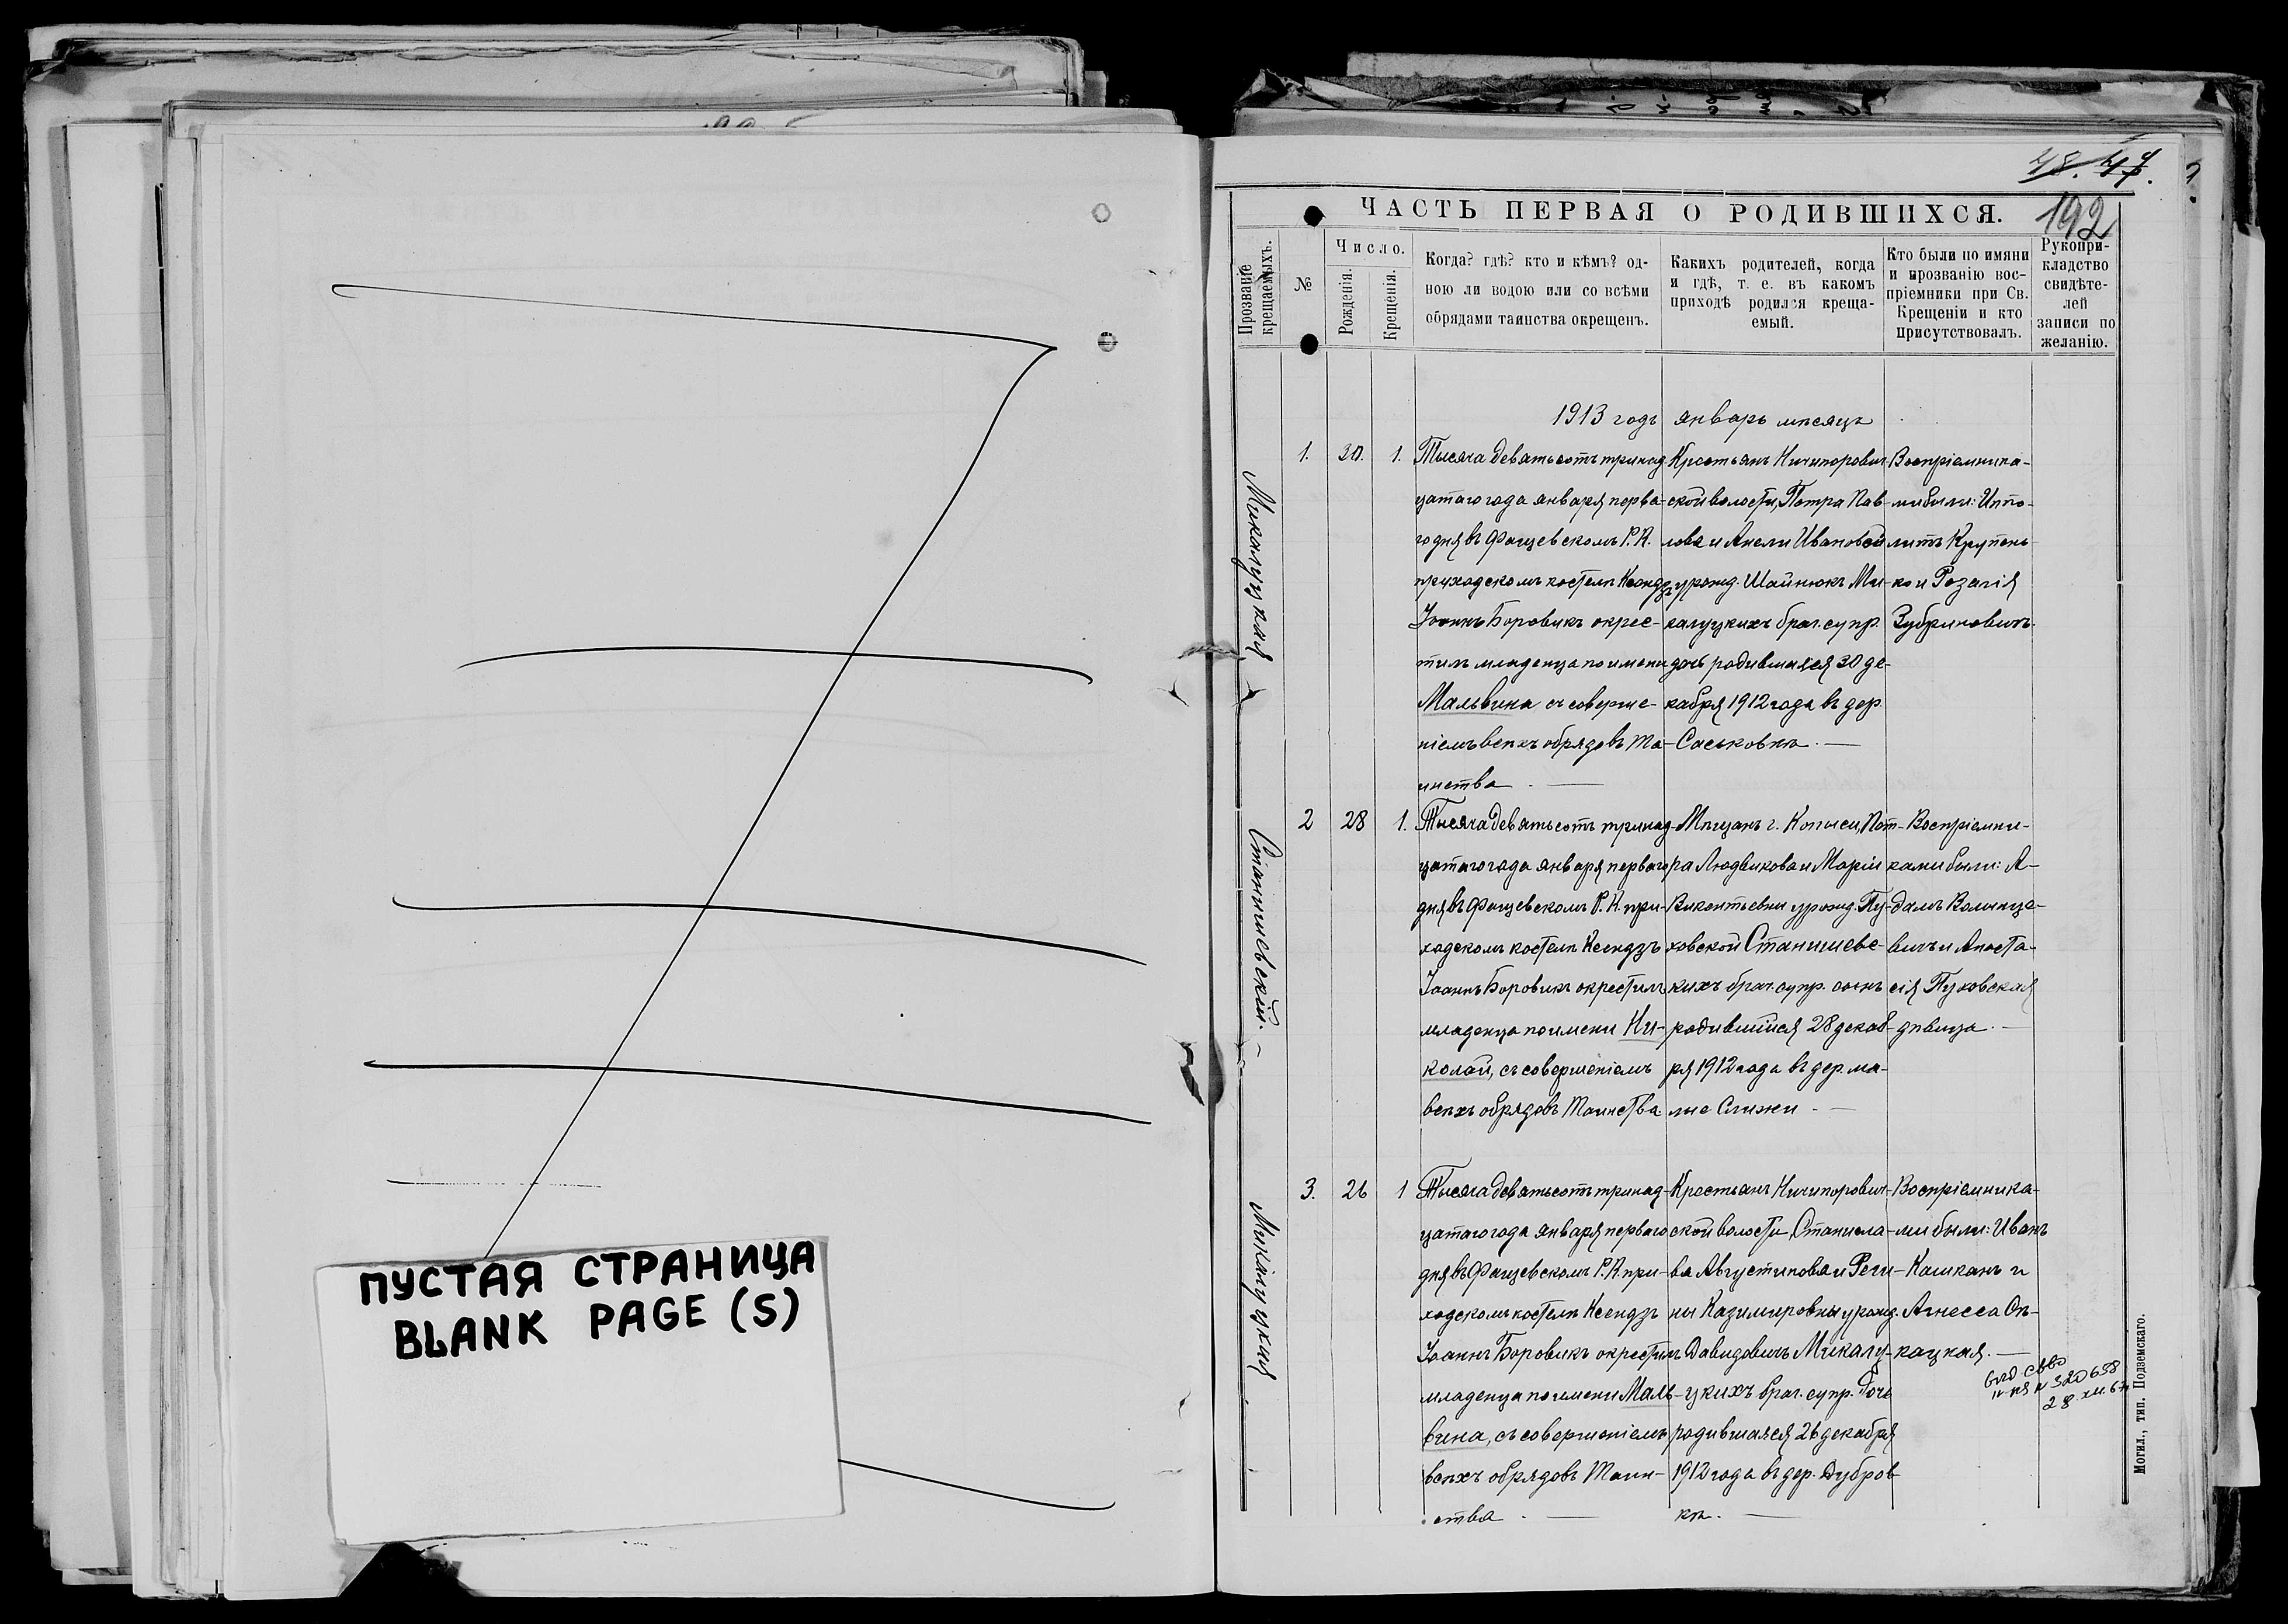 ПУСТАЯ СТРАНИЦА
BLANK PAGE (S)
48. 47.
192
ЧАСТЬ ПЕРВАЯ О РОДИВШИХСЯ.
Прозваніе крещаемыхъ.
№
Число.
Рожденія.
Крещенія.
Когда? гдѣ? кто и кѣмъ? од-
ною ли водою или со всѣми
обрядами таинства окрещенъ.
Какихъ родителей, когда
и гдѣ, т. е. въ какомъ
приходѣ родился креща-
емый.
Кто были по имяни
и прозванію вос-
пріемники при Св.
Крещеніи и кто
присутствовалъ.
Рукопри-
кладство
свидѣте-
лей
записи по
желанію.
1913 годъ январь мѣсяцъ
Микалуцкая
1. 30. 1.
Тысяча девятьсотъ тринад-
цатаго года января перва-
го дня въ Фащевскомъ Р. К.
приходскомъ костелѣ Ксендзъ
Іоаннъ Боровикъ окрес-
тилъ младенца по имени
Мальвина съ соверше-
ніемъ всѣхъ обрядовъ Та-
инства
Крестьянъ Ничипорович-
ской волости, Петра Пав-
лова и Анели Ивановой
урожд. Шайнюкъ Ми-
калуцкихъ брач. супр.
дочь родившаяся 30 де-
кабря 1912 года въ дер.
Саськовкѣ.
Воспріемника-
ми были: Иппо-
литъ Крупень-
ко и Розалія
Зубриновичъ.
Станишевскій.
2 28 1.
Тысяча девятьсотъ тринад-
цатаго года января перваго
дня въ Фащевскомъ Р. К. при-
ходскомъ костелѣ Ксендзъ
Іоаннъ Боровикъ окрестилъ
младенца по имени Ни-
колай, съ совершеніемъ
всѣхъ обрядовъ Таинства
Мѣщанъ г. Копыси, Пет-
ра Людвикова и Маріи
Викентьевны урожд. Пу-
ховской Станишевс-
кихъ брач. супр. сынъ
родившійся 28 декаб-
ря 1912 года въ дер. ма-
лые Слижи.
Воспріемни-
ками были: А-
дамъ Волынце-
вичъ и Анаста-
сія Пуховская
дѣвица.
Микалуцкая
3. 26 1
Тысяча девятьсотъ тринад-
цатаго года января перваго
дня въ Фащевскомъ Р. К. при-
ходскомъ костелѣ Ксендзъ
Іоаннъ Боровикъ окрестилъ
младенца по имени Маль-
вина, съ совершеніемъ
всѣхъ обрядовъ Таин-
ства
Крестьянъ Ничипорович-
ской волости, Станисла-
ва Августинова и Реги-
ны Казимировны урожд.
Давидовичъ Микалу-
цкихъ брач. супр. дочь
родившаяся 26 декабря
1912 года въ дер. Дубров-
кѣ.
Воспріемника-
ми были: Иванъ
Кашканъ и
Агнесса Оь-
кацкая.
N 320638
28.XII.67
Могил., тип. Подземскаго.